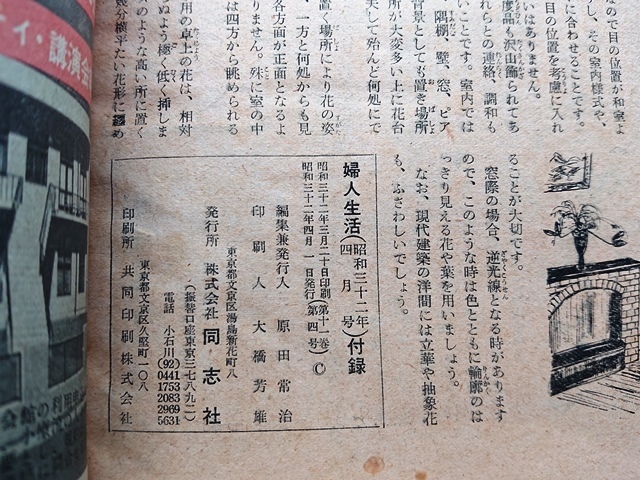 なので目の位置が和室よ
に合わせることです。
し、その室内様式や、
目の位置を考慮に入れ
いはありません。
度品も沢山飾られてあ
れらとの連絡、調和も
いことです。室内では
隅棚、壁、窓、ピア
背景としても置き場所
所が大変多い上に花台
夫して殆んど何処にで
置く場所により花の姿
、一方と何処からも見
各方面が正面となるよ
りません。殊に室の中
は四方から眺められる
用の卓上の花は、相対
ぬよう極く低く挿しま
のような高い所に置く
幾分横平たい花形に纏め
ることが大切です。
窓際の場合、逆光線となる時があります
ので、このような時は色とともに輪廓のは
っきり見える花や葉を用いましょう。
なお、現代建築の洋間には立華や抽象花
も、ふさわしいでしょう。
婦人生活(昭和三十二年四月号)付録
昭和三十二年三月二十日印刷(第十一巻)
昭和三十二年四月一日発行(第四号)
©
編集兼発行人 原田常治
印刷人 大橋芳雄
東京都文京区湯島新花町八
発行所 株式会社 同志社
(振替口座東京三七八九二)
電話 小石川(92)0441 1753 2083 2969 5631
東京都文京区久堅町一〇八
印刷所 共同印刷株式会社
ティ・講演会
会館の利用